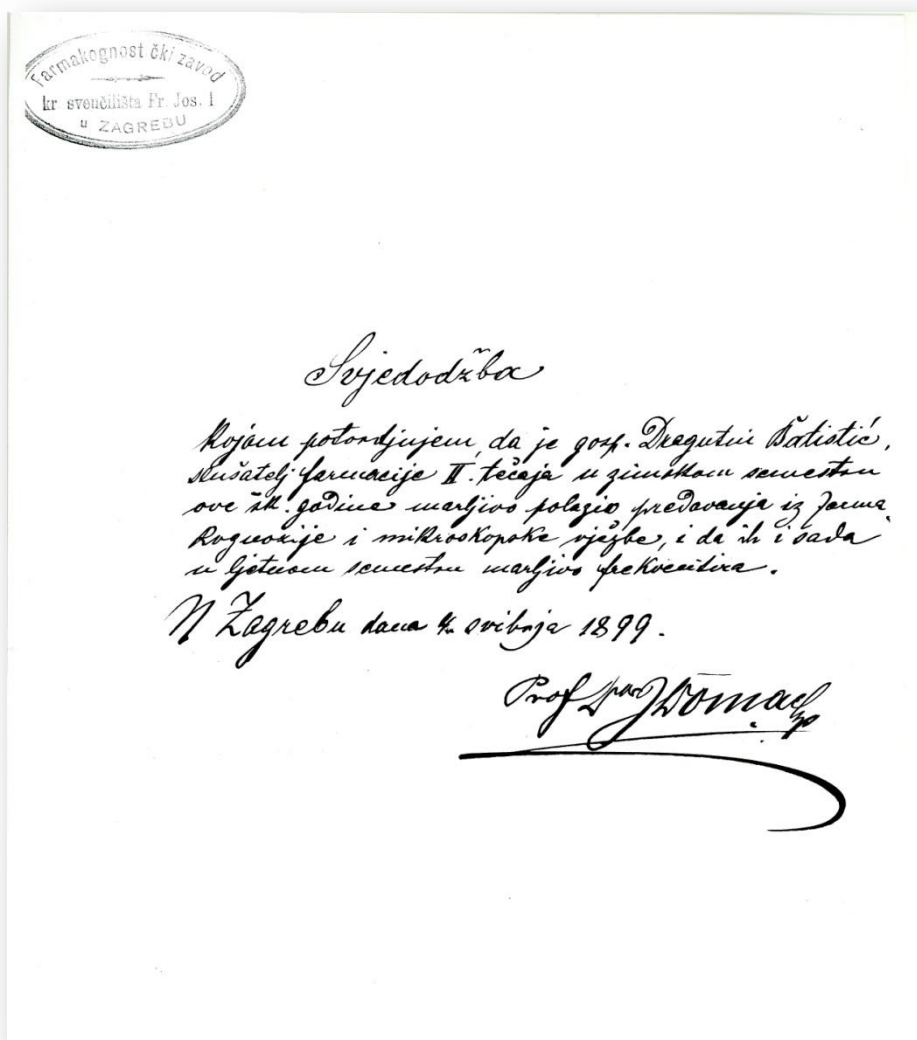 Farmakognost čki zavod
kr sveučilišta Fr. Jos. I
u ZAGREBU
Svjedodžba
kojom potvrdjujem, da je gosp. Dragutin Batistić,
slušatelj farmacije II. tečaja u zimskom semestru
ove šk. godine marljivo polazio predavanja iz farma
kognozije i mikroskopske vježbe, i da ih i sada
u ljetnom semestru marljivo frekventira.
U Zagrebu dana svibnja 1899.
Prof Dr J Domac